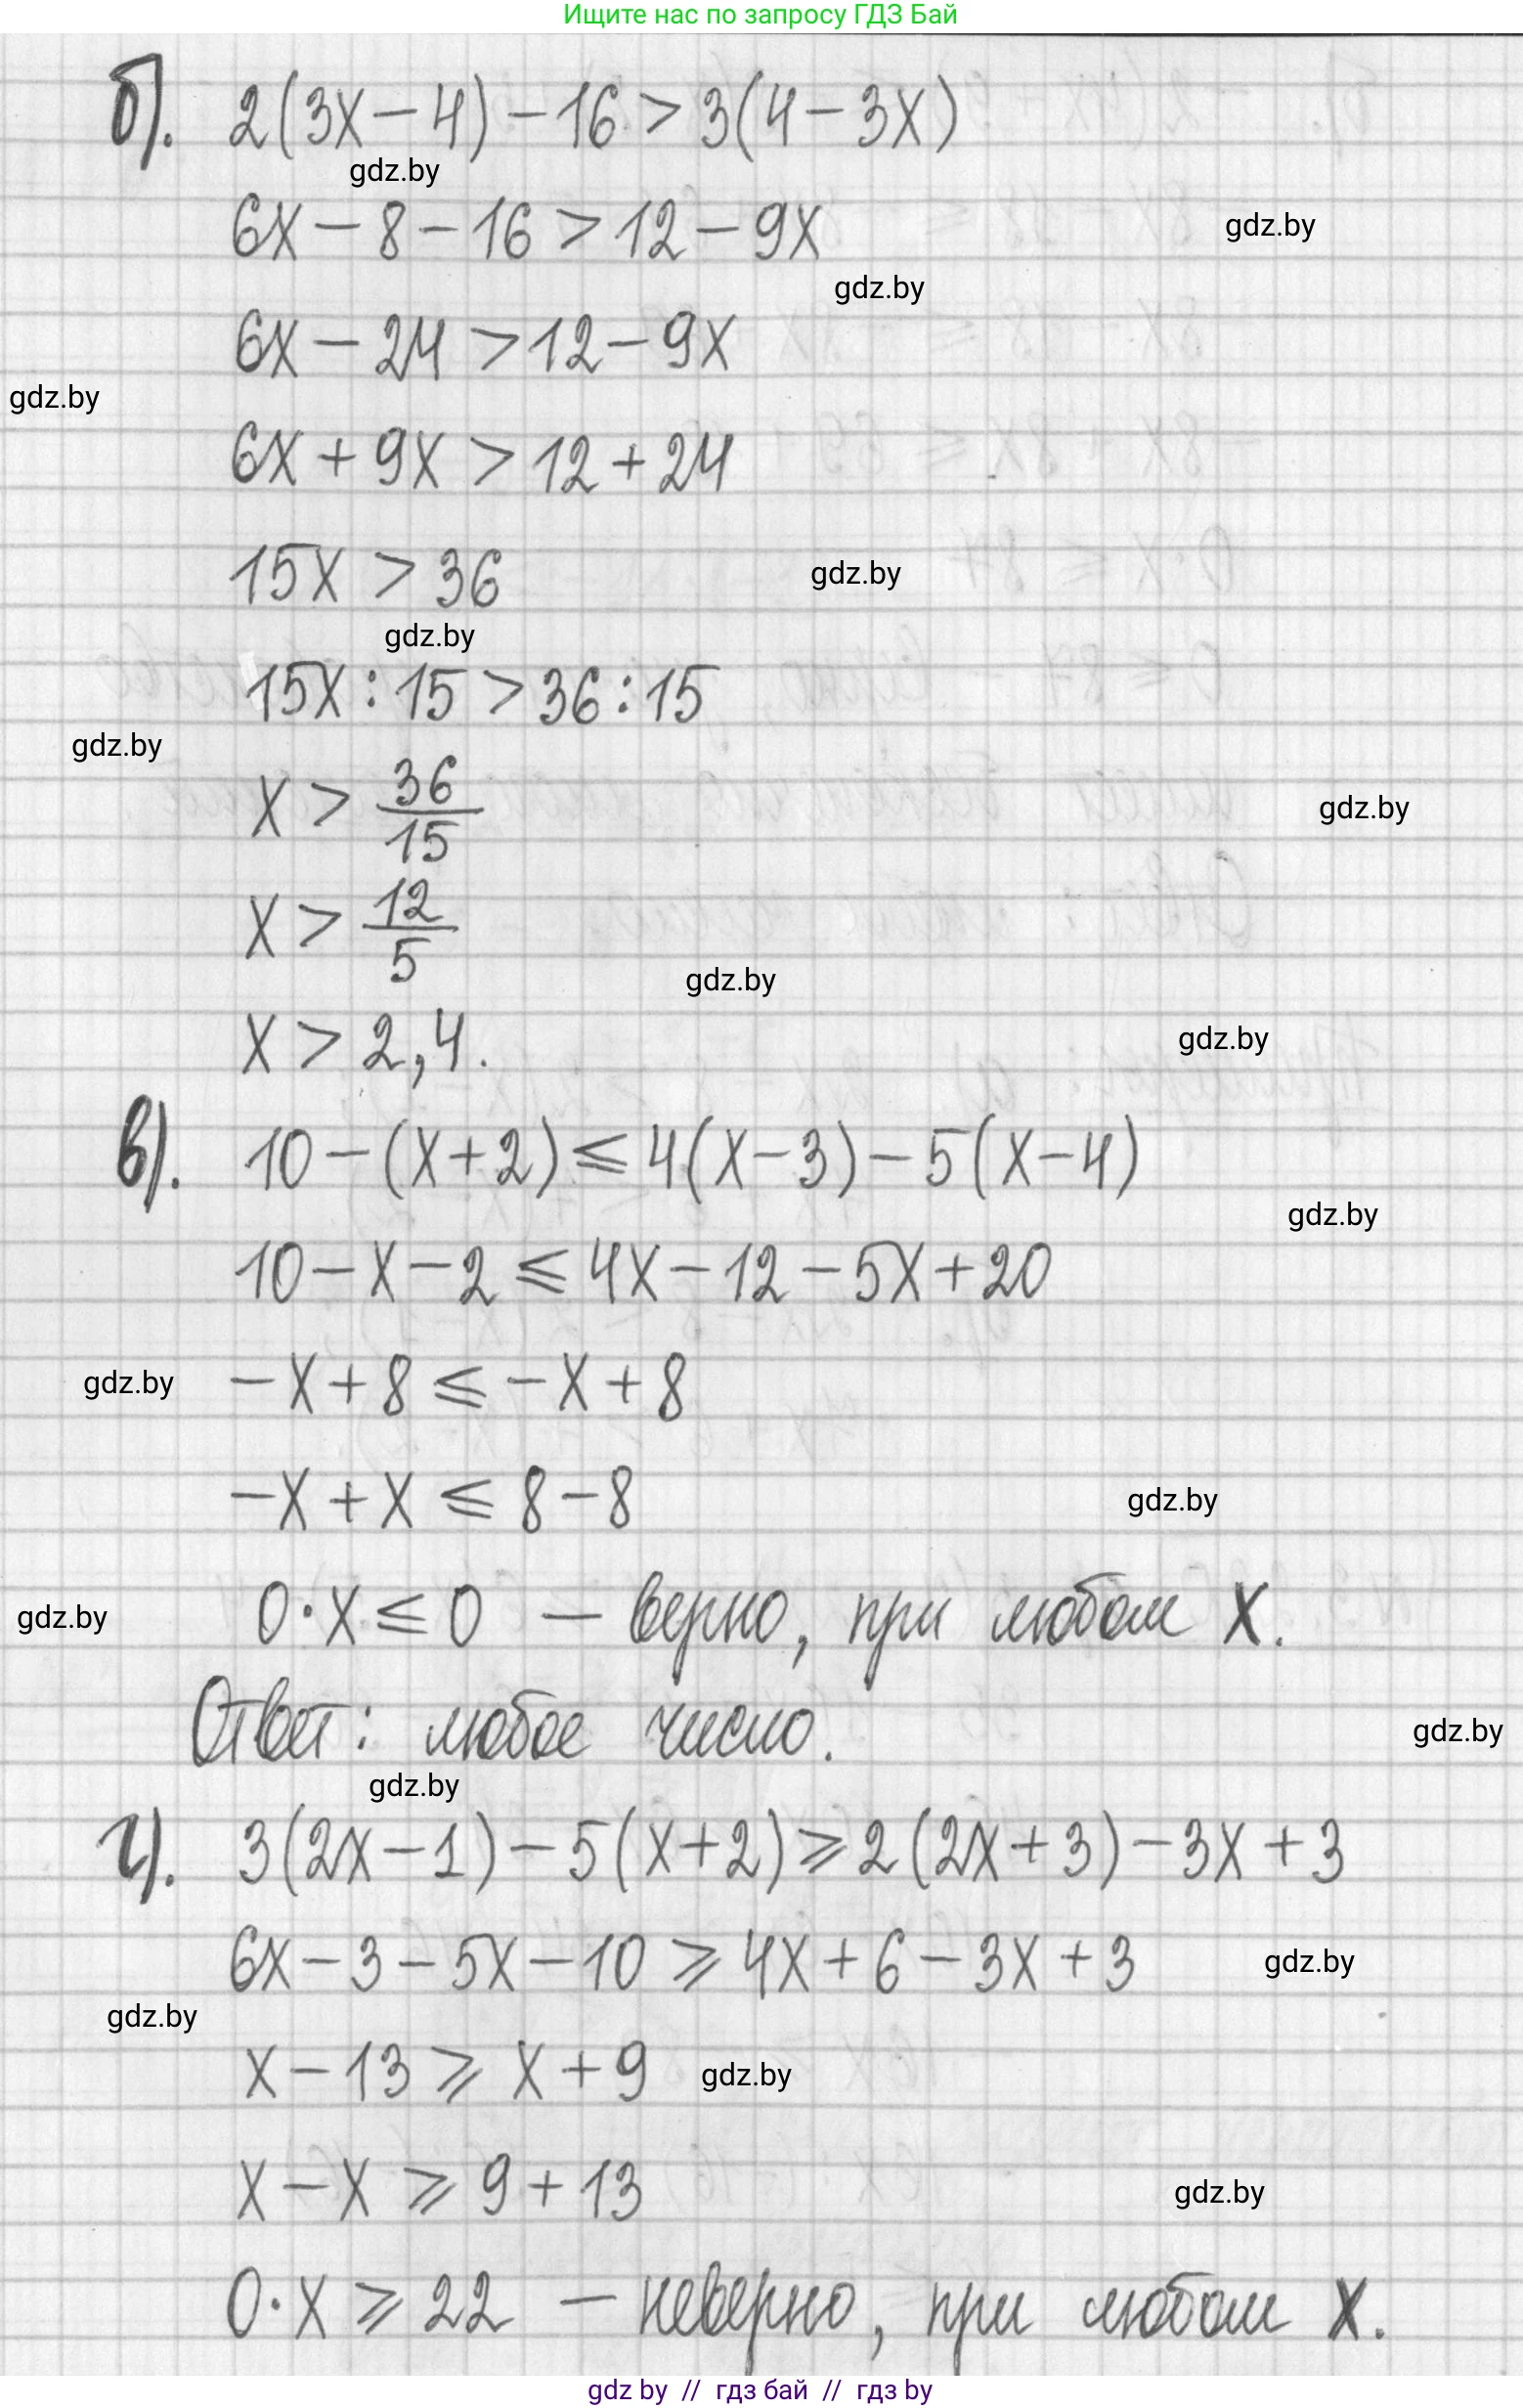 Ищите нас по запросу ГДЗ Бай
б). 2(3x-4)-16>3(4-3x)
gdz.by
6x-8-16>12-9x
gdz.by
gdz.by
6x-24>12-9x
gdz.by
6x+9x>12+24
15x>36
gdz.by
gdz.by
15x:15>36:15
gdz.by
x>36/15
gdz.by
x>12/5
gdz.by
x>2,4.
gdz.by
в). 10-(x+2)≤4(x-3)-5(x-4)
gdz.by
10-x-2≤4x-12-5x+20
gdz.by
-x+8≤-x+8
-x+x≤8-8
gdz.by
gdz.by
0·x≤0 – верно, при любом x.
Ответ: любое число.
gdz.by
gdz.by
г). 3(2x-1)-5(x+2)≥2(2x+3)-3x+3
6x-3-5x-10≥4x+6-3x+3
gdz.by
gdz.by
x-13≥x+9
gdz.by
x-x≥9+13
gdz.by
0·x≥22 – неверно, при любом x.
gdz by // гдз бай // гдз by